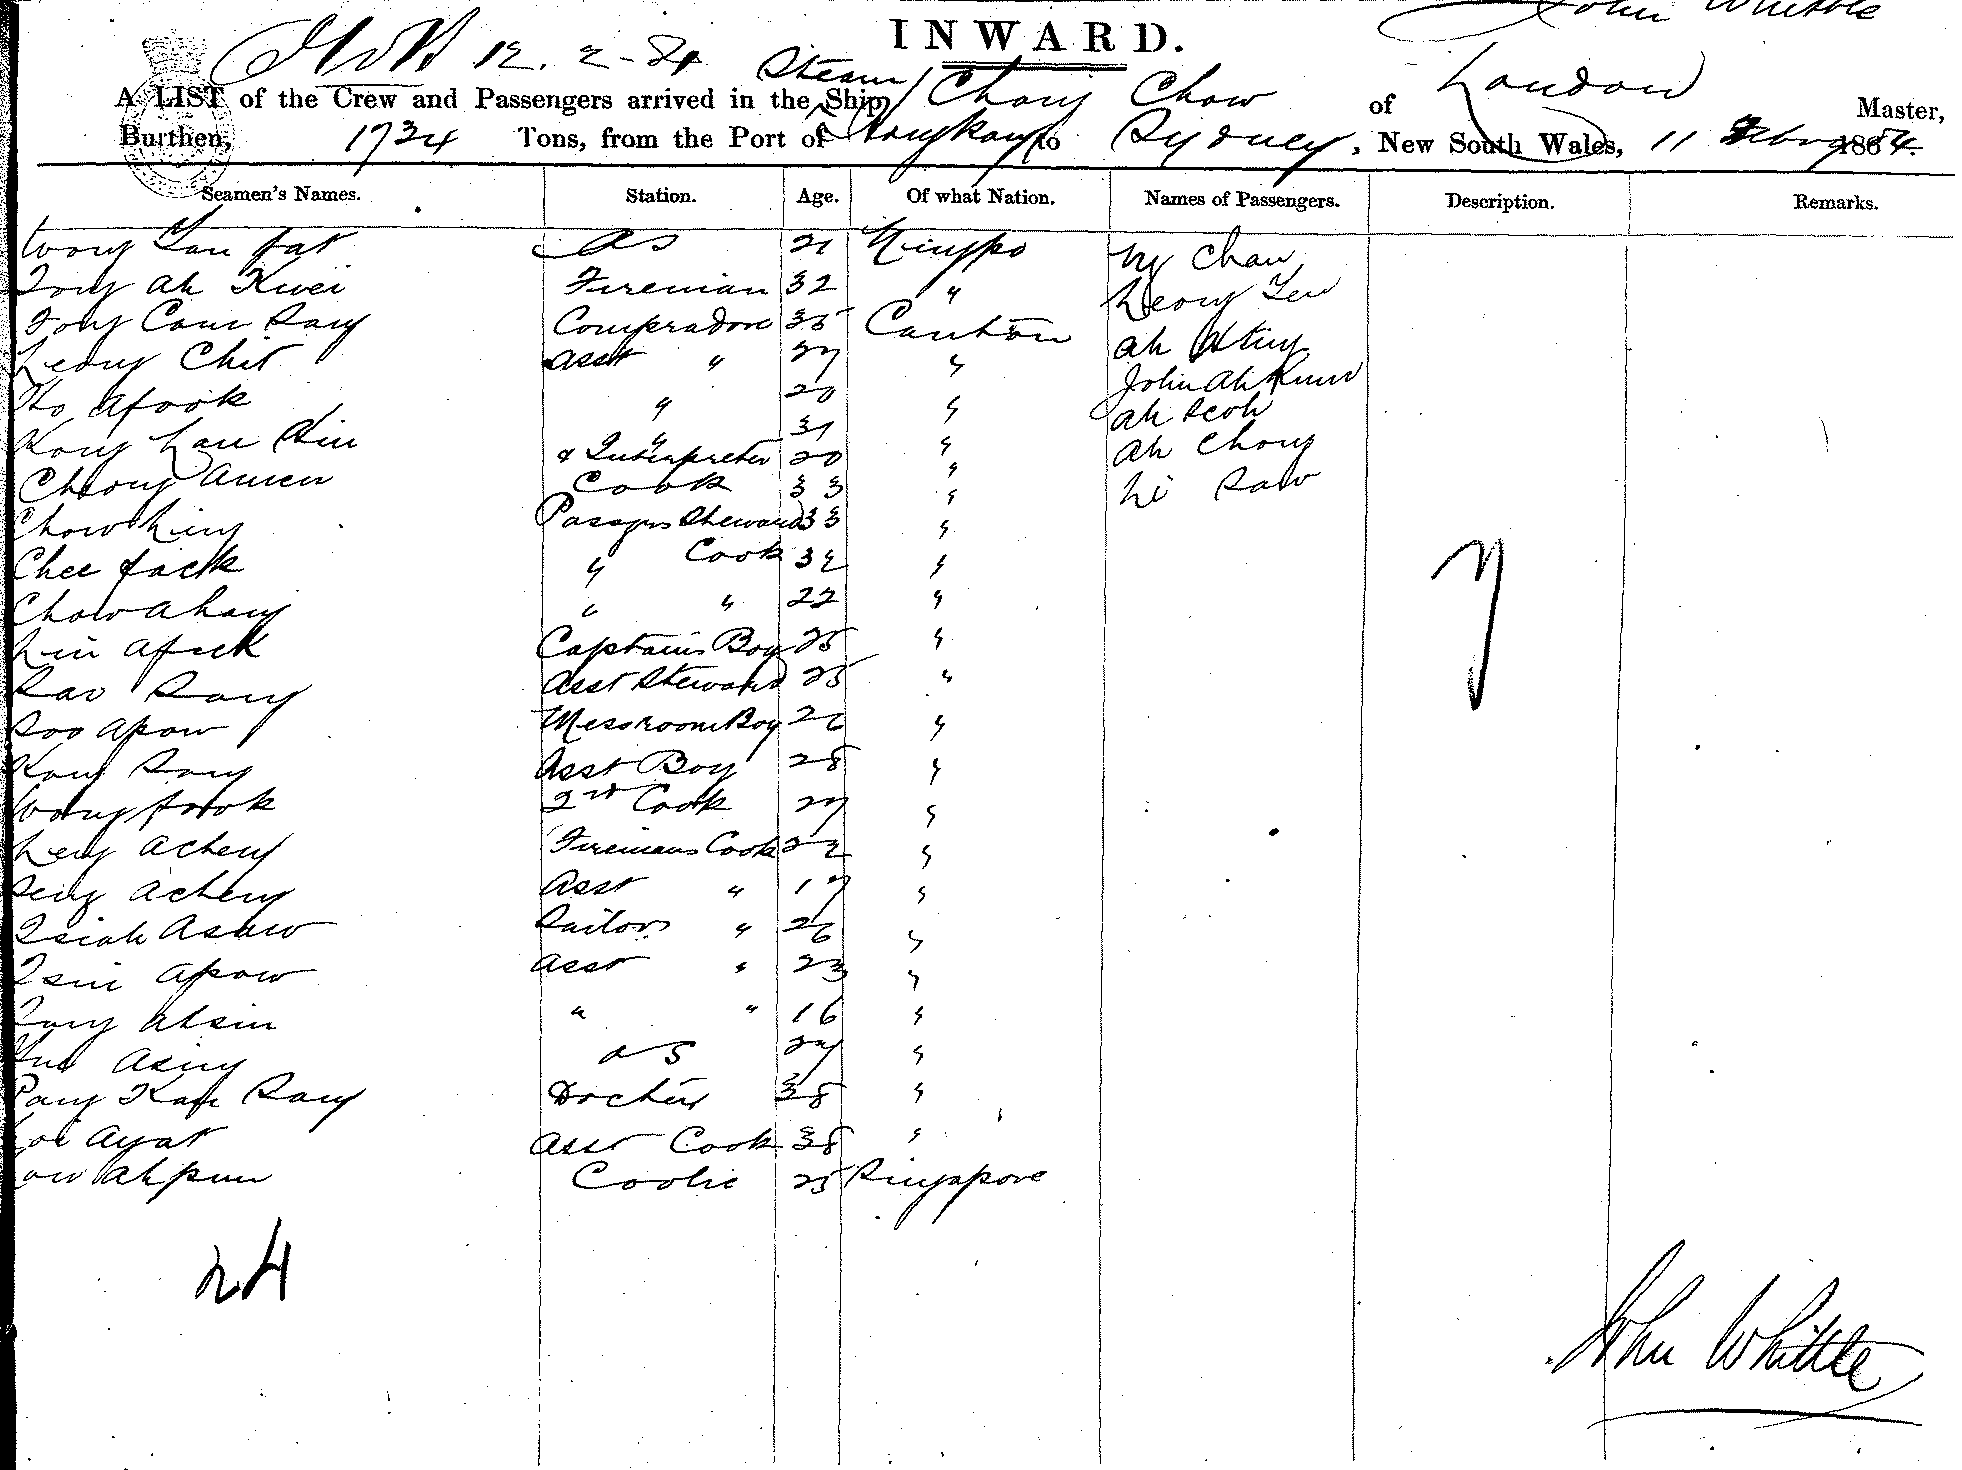 John Whittle
INWARD.
12. 2 - 84 Steam
A LIST of the Crew and Passengers arrived in the Ship Chow of London Master,
Burthen, 1734 Tons, from the Port of Hongkong to Sydney, New South Wales, 11 1884.
Seamen's Names. Station. Age. Of what Nation. Names of Passengers. Description. Remarks.
Wong Yau fat AS 21 Ningpo Ny Chan
Tong Ah Kwei Fireman 32 " Leong Yew
Fong Cam Sang Compradore 35 Canton Ah
Leong Chit Asst " 27 " John Ah Kum
Ho Afook " 20 " Ah
Kong Lau " 31 " Ah Chong
Cheong & Interpreter 20 " Li Saw
Cook 33 "
Chow Ling Passgrs Steward 33 "
Chee fack " Cook 32 "
Chow Ahang " " 22 "
Lin Afuk Captains Boy 25 "
Sang Asst Steward 25 "
Soo Apow Messroom Boy 26 "
Kong Song Asst Boy 28 "
Wong fook 2nd Cook 27 "
Acheng Firemans Cook 22 "
Acheng Asst " 17 "
Tsiah Asaw Sailors " 26 "
Tsin Apow Asst " 23 "
Atsin " " 16 "
Asing OS 27 "
Pang Kan Sang Doctor 38 "
Ayat Asst Cook 38 "
Ahpun Coolie 25 Singapore
7
24
John Whittle